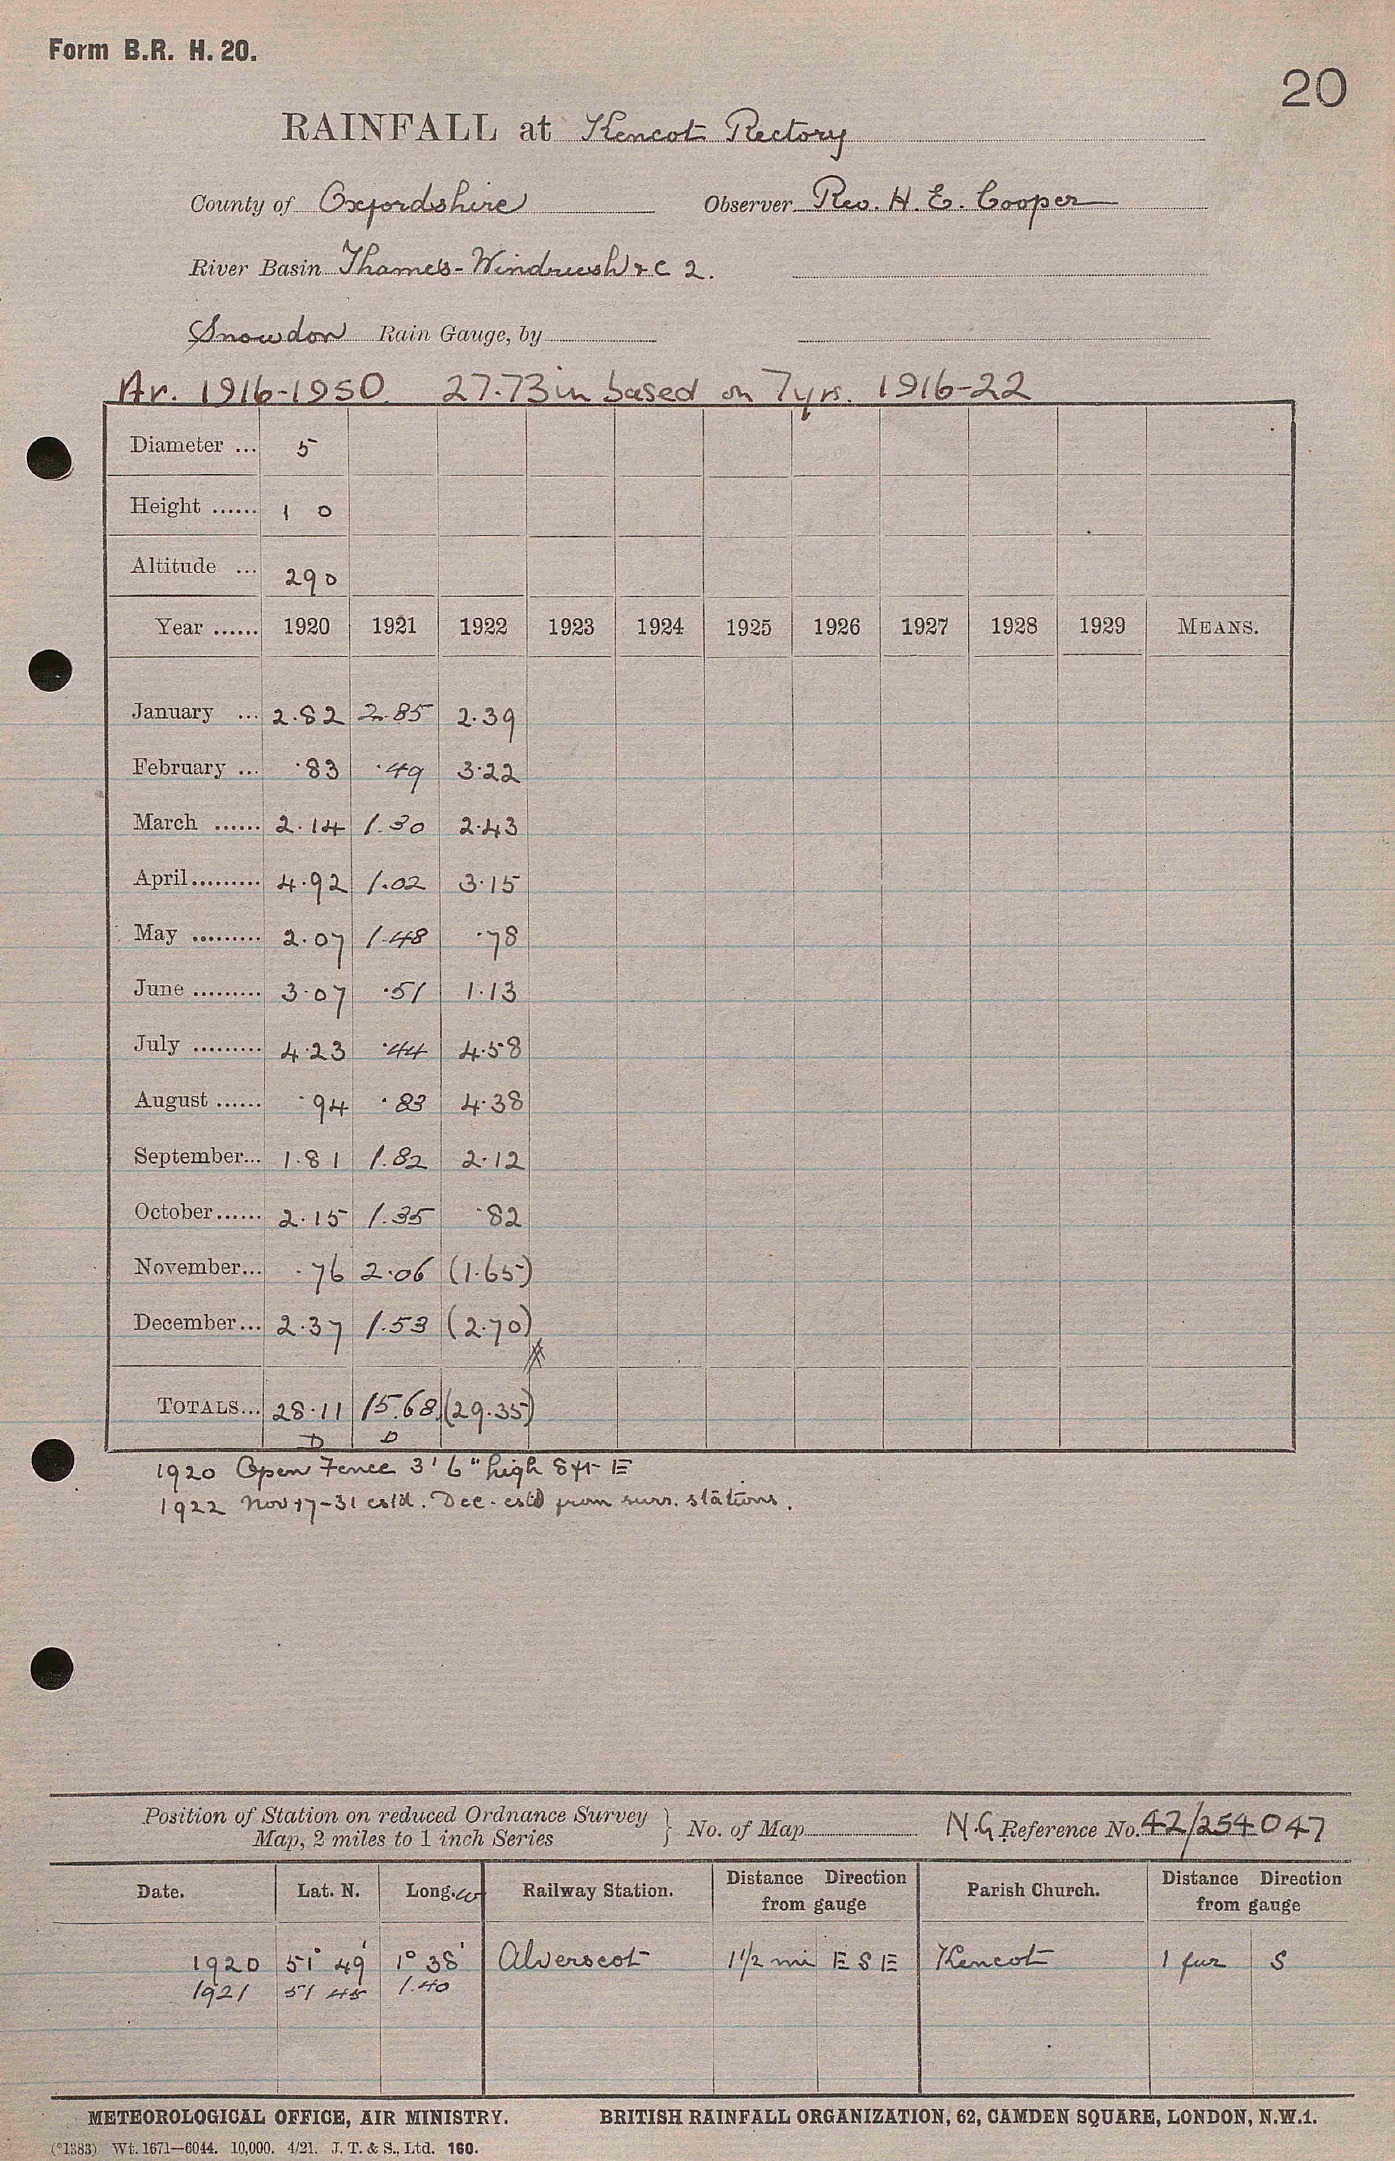 Form B.R. H. 20.
20
RAINFALL at Kencot Rectory
County of Oxfordshire Observer Rev. H. E. Cooper
River Basin Thames - Windrush &c 2.
Snowdon Rain Gauge, by
Av. 1916-1950 27.73in based on 7yrs. 1916-22
Diameter ... 5
Height ...... 1 0
Altitude ... 290
Year ...... 1920 1921 1922 1923 1924 1925 1926 1927 1928 1929 MEANS.
January ... 2.82 2.85 2.39
February ... .83 .49 3.22
March ...... 2.14 1.30 2.43
April......... 4.92 1.02 3.15
May ......... 2.07 1.48 .78
June ......... 3.07 .51 1.13
July ......... 4.23 .44 4.58
August ...... .94 .83 4.38
September... 1.81 1.82 2.12
October...... 2.15 1.35 .82
November... .76 2.06 (1.65)
December... 2.37 1.53 (2.70)
TOTALS... 28.11 15.68 (29.35)
D D
1920 Open Fence 3' 6" high 8 ft E
1922 Nov 17-31 estd. Dec. estd from surr. stations.
Position of Station on reduced Ordnance Survey
Map, 2 miles to 1 inch Series } No. of Map N.G Reference No. 42/254047
Date. Lat. N. Long. W Railway Station. Distance Direction from gauge Parish Church. Distance Direction from gauge
1920 51° 49' 1° 38' Alverscot 1 1/2 mi E S E Kencot 1 fur S
1921 51 45 1.40
METEOROLOGICAL OFFICE, AIR MINISTRY. BRITISH RAINFALL ORGANIZATION, 62, CAMDEN SQUARE, LONDON, N.W.1.
(*1383) Wt. 1671—6044. 10,000. 4/21. J. T. & S., Ltd. 160.